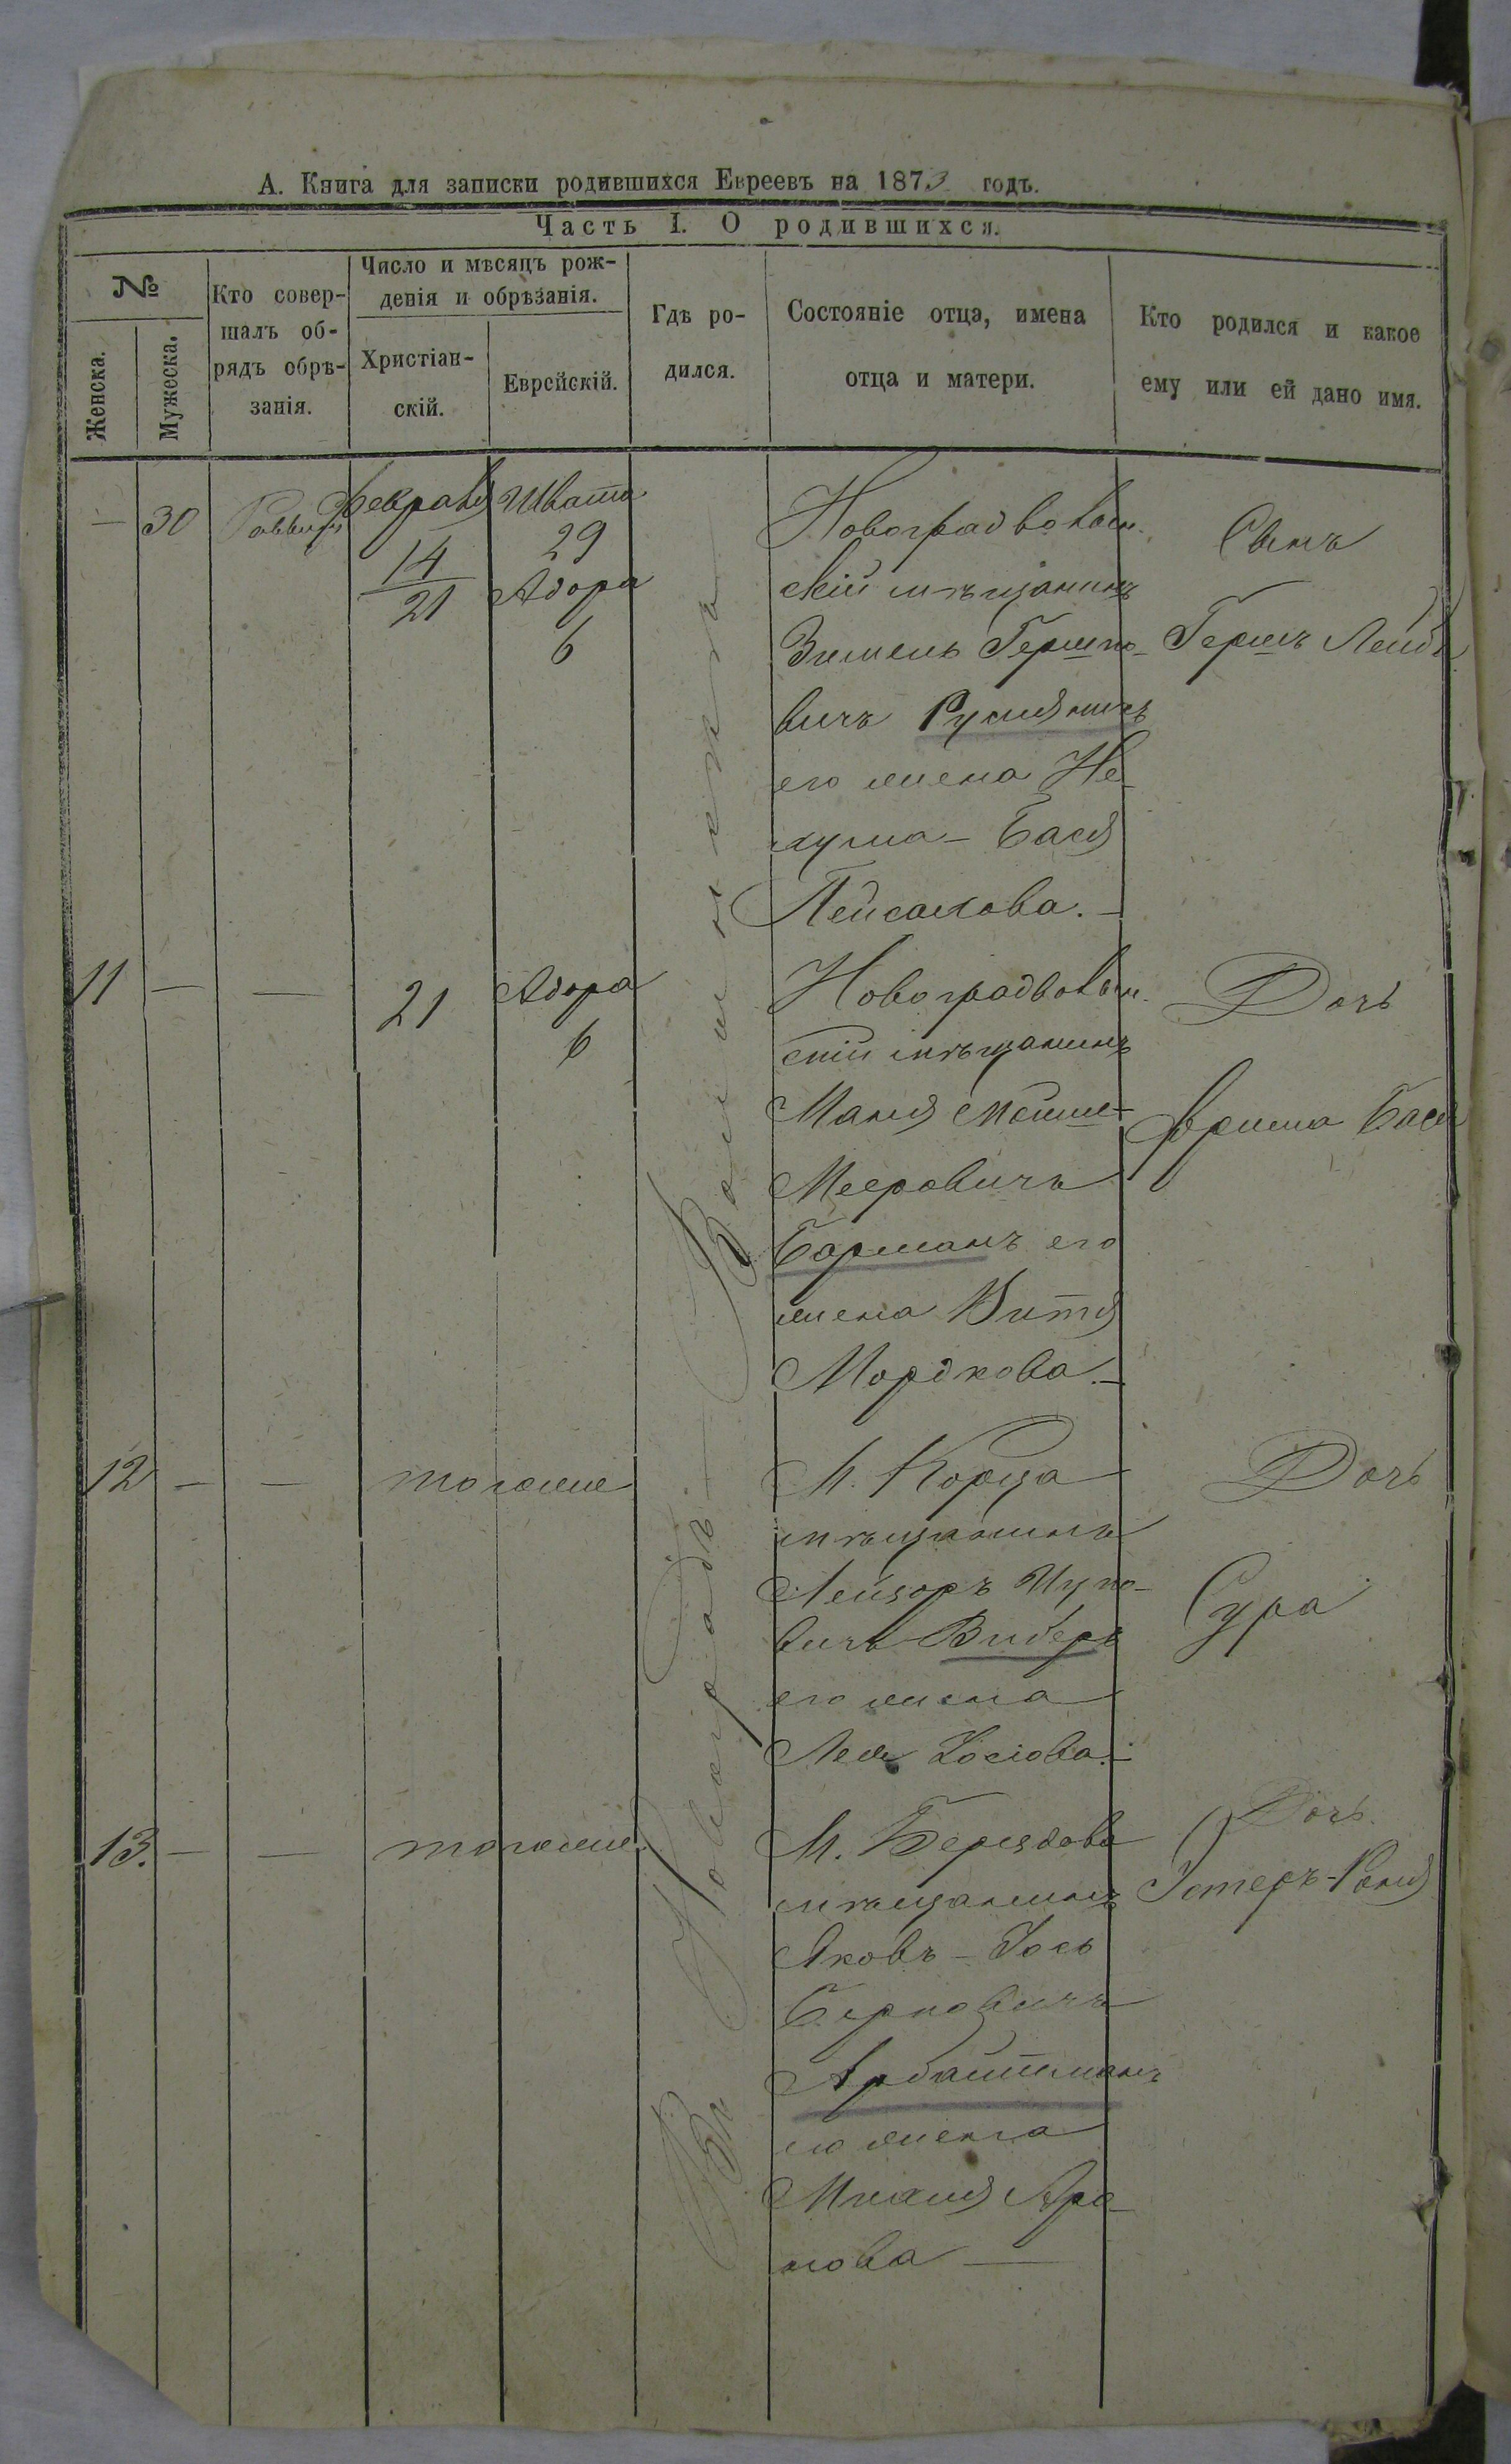 А. Книга для записки родившихся Евреевъ на 1873 годъ.
Часть I. О родившихся.
№
Женска.
Мужеска.
Кто совер-
шалъ об-
рядъ обрѣ-
занія.
Число и мѣсяцъ рож-
денія и обрѣзанія.
Христіан-
скій.
Еврейскій.
Гдѣ ро-
дился.
Состояніе отца, имена
отца и матери.
Кто родился и какое
ему или ей дано имя.
— 30 Раввинъ
Февраля
14
21
Швата
29
Адора
6
Новоградволын-
скій мѣщанинъ
Зимель Гершко-
вичъ
его жена Не-
хума-Бася
Пейсахова.—
Сынъ
Гершъ Лейбъ
11 — —
21
Адора
6
Новоградволын-
скій мѣщанинъ
Маня Мошке
Мееровичъ
Барманъ его
жена Витя
Мордкова.—
Дочь
Фрима Бася
12 — —
тогоже
М. Корца
мѣщанинъ
Лейзоръ Ицко-
вичъ Виберъ
его жена
Лея Іосіова.—
Дочь
Сура
13. — —
тогоже
М. Берездова
мѣщанинъ
Яковъ-Іось
Берковичъ
Арбайтманъ
его жена
Михля Аро-
нова —
Дочь.
Эстеръ-Раня
Въ Новоградъ-Волынскѣ